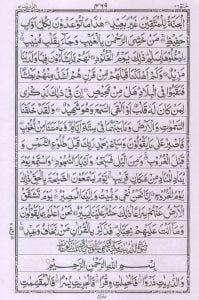 ۴۶۹
الْجَنَّةُ لِلْمُتَّقِيْنَ غَيْرَ بَعِيْدٍ هٰذَا مَا تُوْعَدُوْنَ لِكُلِّ اَوَّابٍ
حَفِيْظٍ مَنْ خَشِيَ الرَّحْمٰنَ بِالْغَيْبِ وَجَآءَ بِقَلْبٍ مُّنِيْبِ
ادْخُلُوْهَا بِسَلٰمٍ ذٰلِكَ يَوْمُ الْخُلُوْدِ لَهُمْ مَّا يَشَآءُوْنَ فِيْهَا وَلَدَيْنَا
مَزِيْدٌ وَكَمْ اَهْلَكْنَا قَبْلَهُمْ مِّنْ قَرْنٍ هُمْ اَشَدُّ مِنْهُمْ بَطْشًا
فَنَقَّبُوْا فِي الْبِلَادِ هَلْ مِنْ مَّحِيْصٍ اِنَّ فِيْ ذٰلِكَ لَذِكْرٰى
لِمَنْ كَانَ لَهٗ قَلْبٌ اَوْ اَلْقَى السَّمْعَ وَهُوَ شَهِيْدٌ وَلَقَدْ خَلَقْنَا
السَّمٰوٰتِ وَالْاَرْضَ وَمَا بَيْنَهُمَا فِيْ سِتَّةِ اَيَّامٍ وَّمَا مَسَّنَا مِنْ لُّغُوْبٍ
فَاصْبِرْ عَلٰى مَا يَقُوْلُوْنَ وَسَبِّحْ بِحَمْدِ رَبِّكَ قَبْلَ طُلُوْعِ الشَّمْسِ وَ
قَبْلَ الْغُرُوْبِ وَمِنَ الَّيْلِ فَسَبِّحْهُ وَاَدْبَارَ السُّجُوْدِ وَاسْتَمِعْ يَوْمَ
يُنَادِ الْمُنَادِ مِنْ مَّكَانٍ قَرِيْبٍ يَّوْمَ يَسْمَعُوْنَ الصَّيْحَةَ بِالْحَقِّ ذٰلِكَ
يَوْمُ الْخُرُوْجِ اِنَّا نَحْنُ نُحْيٖ وَنُمِيْتُ وَاِلَيْنَا الْمَصِيْرُ يَوْمَ تَشَقَّقُ
الْاَرْضُ عَنْهُمْ سِرَاعًا ذٰلِكَ حَشْرٌ عَلَيْنَا يَسِيْرٌ نَحْنُ اَعْلَمُ بِمَا يَقُوْلُوْنَ
وَمَآ اَنْتَ عَلَيْهِمْ بِجَبَّارٍ فَذَكِّرْ بِالْقُرْاٰنِ مَنْ يَّخَافُ وَعِيْدِ
بِسْمِ اللّٰهِ الرَّحْمٰنِ الرَّحِيْمِ
وَالذّٰرِيٰتِ ذَرْوًا فَالْحٰمِلٰتِ وِقْرًا فَالْجٰرِيٰتِ يُسْرًا فَالْمُقَسِّمٰتِ